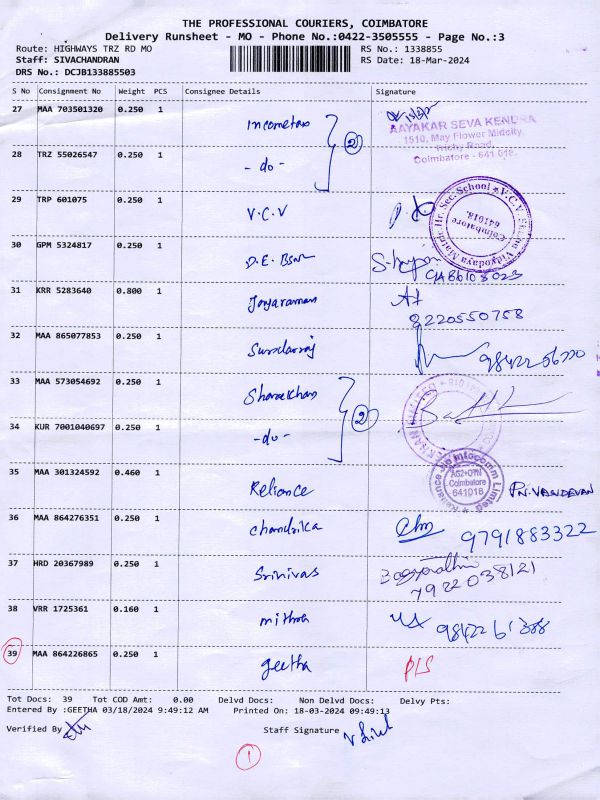 THE PROFESSIONAL COURIERS, COIMBATORE
Delivery Runsheet - MO - Phone No.:0422-3505555 - Page No.:3
Route: HIGHWAYS TRZ RD MO RS No.: 1338855
Staff: SIVACHANDRAN RS Date: 18-Mar-2024
DRS No.: DCJB133885503
S No Consignment No Weight PCS Consignee Details Signature
27 MAA 703501320 0.250 1 Incometax
AAYAKAR SEVA KENDRA
1510, May Flower Midcity,
Trichy Road,
Coimbatore - 641 018.
28 TRZ 55026547 0.250 1 - do - 2
29 TRP 601075 0.250 1 V.C.V
Coimbatore 641018.
30 GPM 5324817 0.250 1 D.E.
31 KRR 5283640 0.800 1 Jayaraman
8220550758
32 MAA 865077853 0.250 1 Sundarraj
33 MAA 573054692 0.250 1 Sharekhan
34 KUR 7001040697 0.250 1 -do- 2
35 MAA 301324592 0.460 1 Reliance
Reliance Jio Infocomm Limited
Coimbatore
641018
P.N. VANDEVAN
36 MAA 864276351 0.250 1 Chandrika 9791883322
37 HRD 20367989 0.250 1 Srinivas
7922038121
38 VRR 1725361 0.160 1 mithra
39 MAA 864226865 0.250 1 geetha
Tot Docs: 39 Tot COD Amt: 0.00 Delvd Docs: Non Delvd Docs: Delvy Pts:
Entered By :GEETHA 03/18/2024 9:49:12 AM Printed On: 18-03-2024 09:49:13
Verified By Staff Signature
1